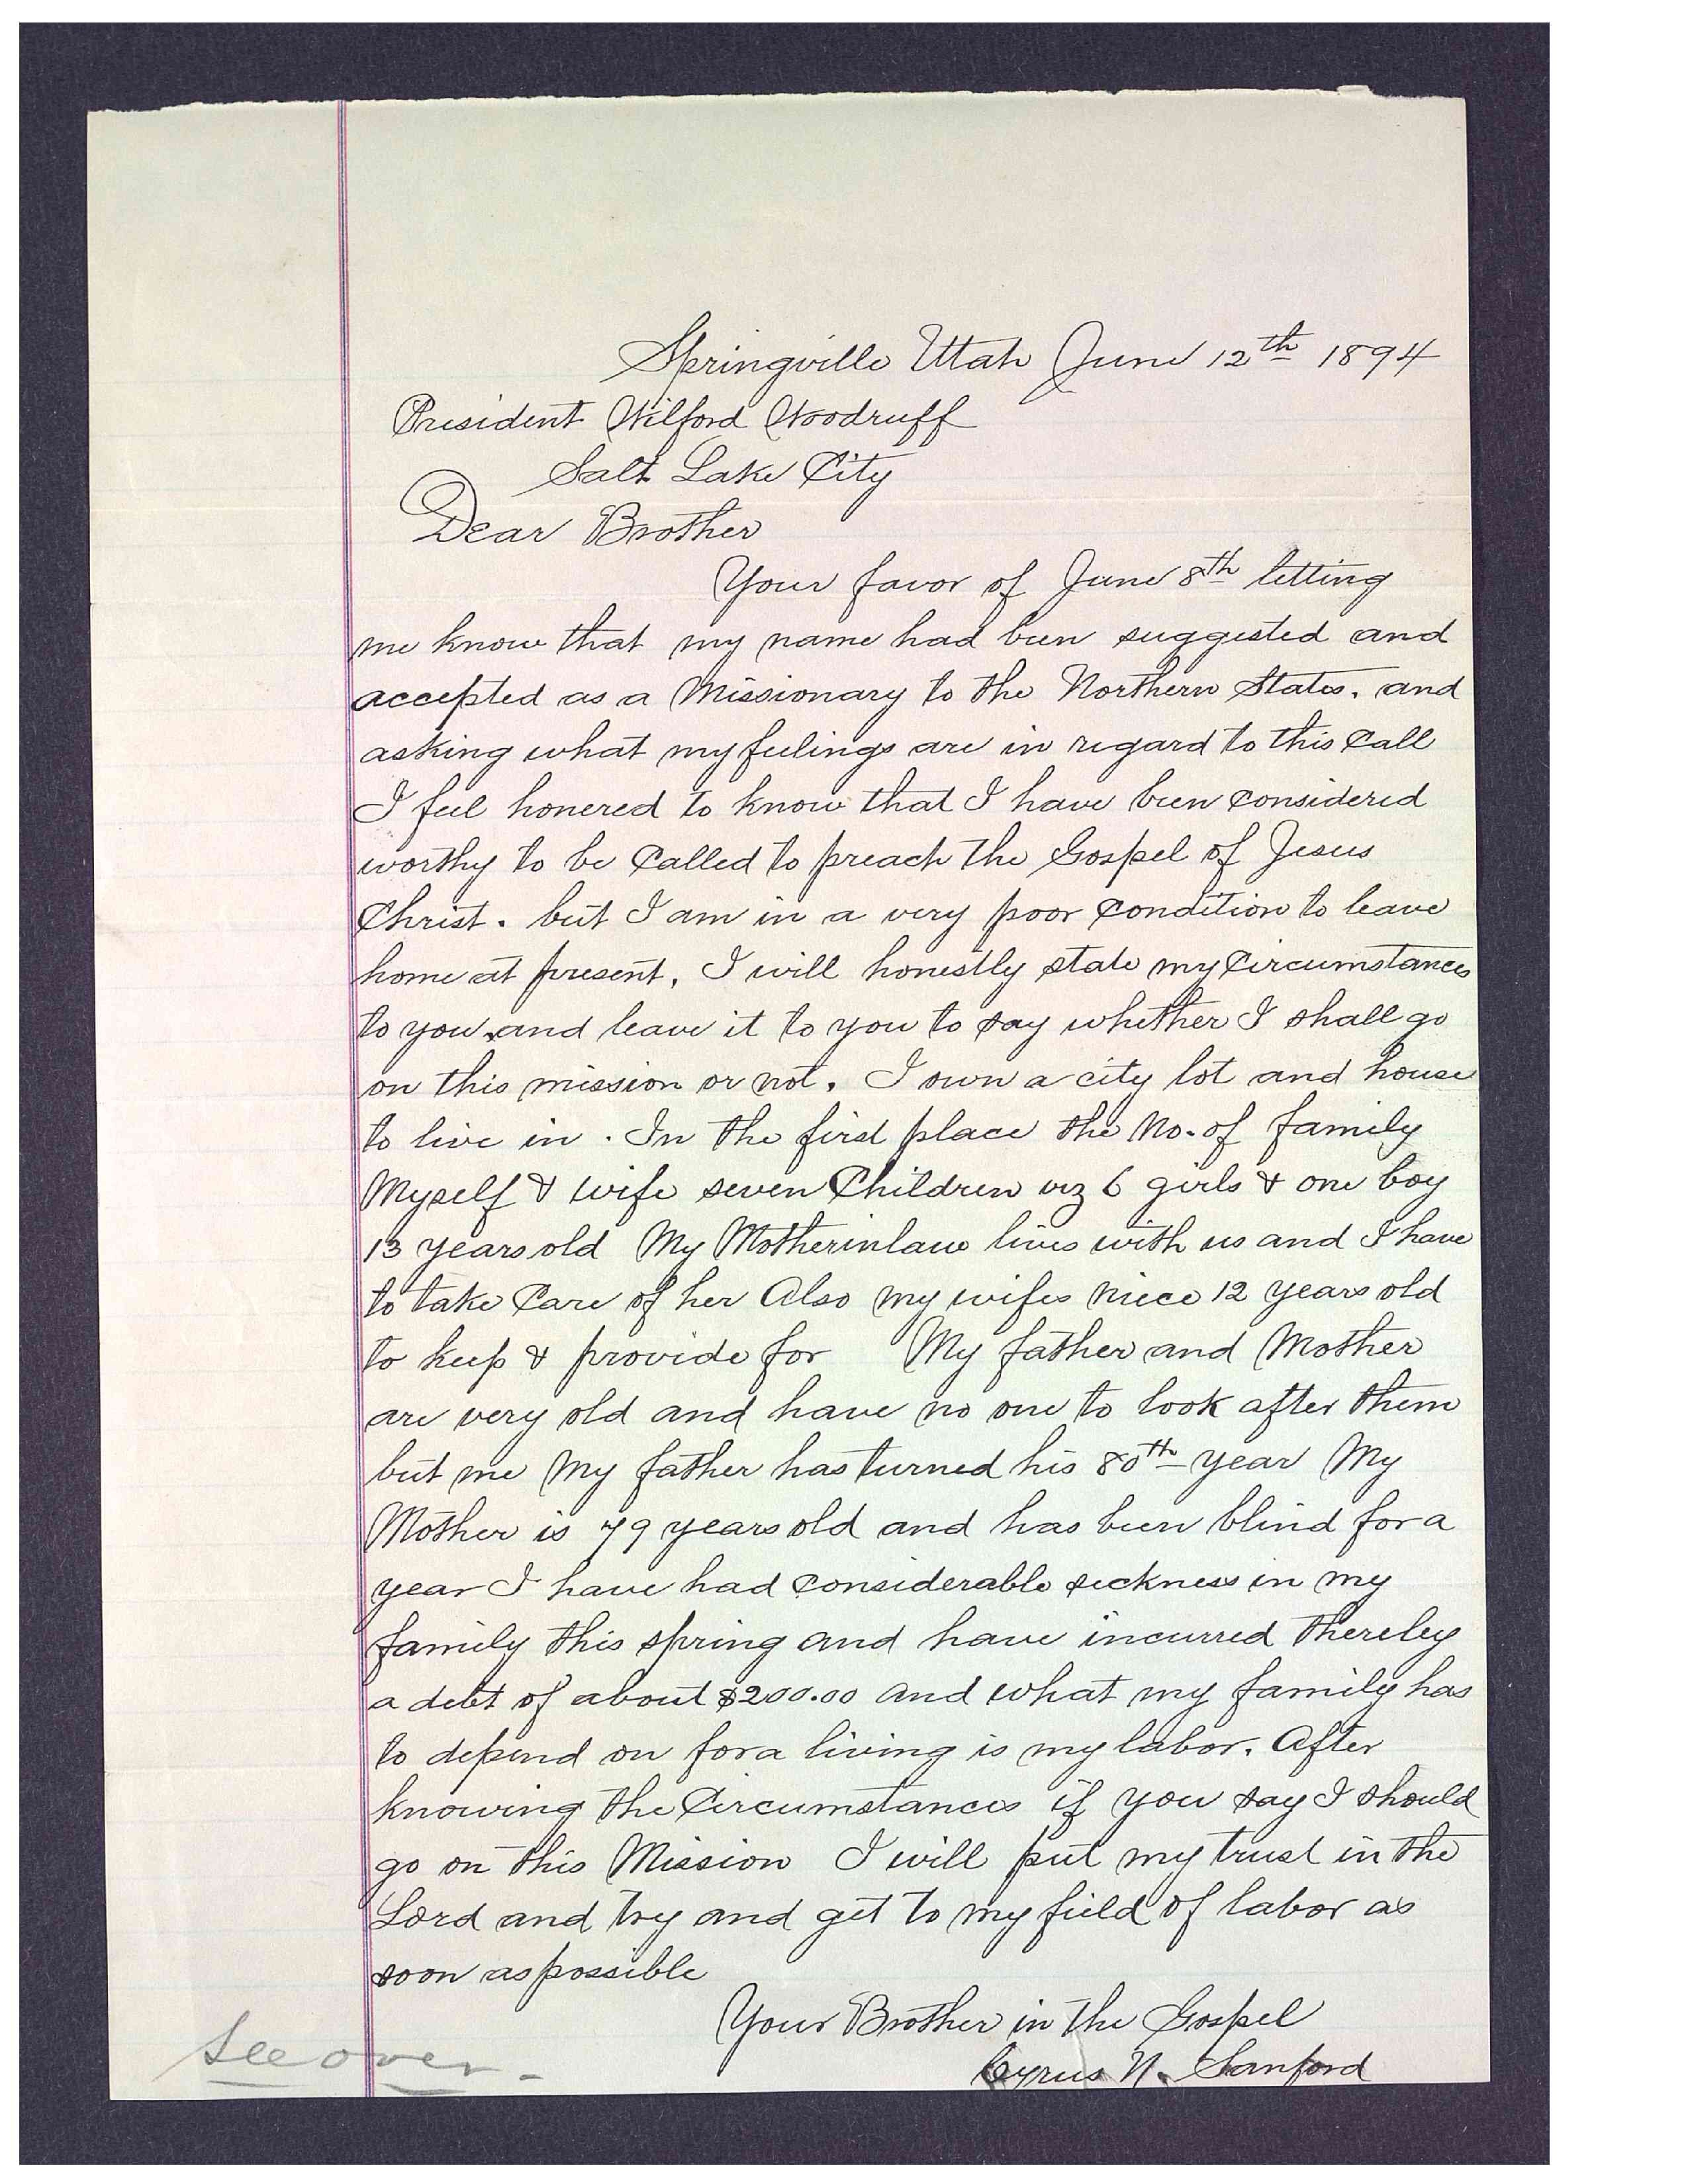 Springville Utah June 12th 1894
President Wilford Woodruff
Salt Lake City
Dear Brother
Your favor of June 8th letting
me know that my name had been suggested and
accepted as a Missionary to the Northern States. and
asking what my feelings are in regard to this Call
I feel honered to know that I have been Considered
worthy to be Called to preach the Gospel of Jesus
Christ. but I am in a very poor Condition to leave
home at present, I will honestly state my Circumstances
to you, and leave it to you to say whether I shall go
on this mission or not. I own a city lot and house
to live in. In the first place the No. of family
Myself & wife seven Children viz 6 girls & one boy
13 years old My Motherinlaw lives with us and I have
to take Care of her Also my wifes niece 12 years old
to keep & provide for My father and Mother
are very old and have no one to look after them
but me My father has turned his 80th year My
Mother is 79 years old and has been blind for a
year I have had Considerable sickness in my
family this spring and have incurred thereby
a debt of about $200.00 and what my family has
to depend on for a living is my labor. After
knowing the Circumstances if you say I should
go on this Mission I will put my trust in the
Lord and try and get to my field of labor as
soon as possible
Your Brother in the Gospel
Cyrus N. Sanford
See over -